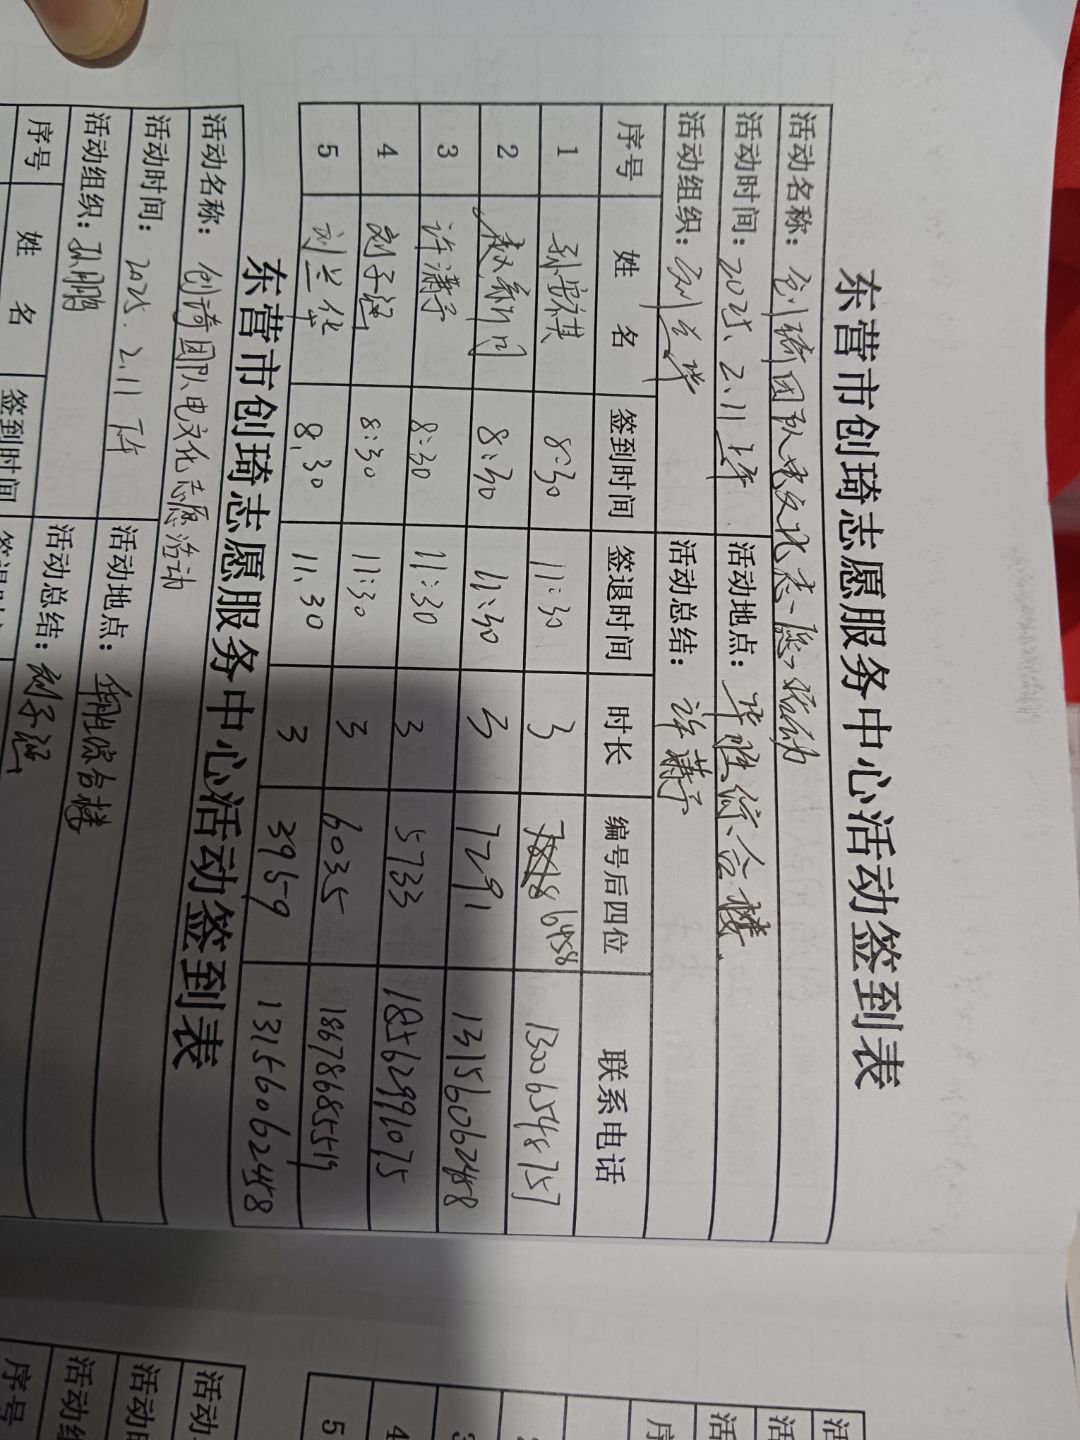 东营市创琦志愿服务中心活动签到表
活动名称：创琦团队电文化志愿活动
活动时间：2025.2.11上午 活动地点：华胜综合楼
活动组织：刘兰华 活动总结：许潇予
序号 姓 名 签到时间 签退时间 时长 编号后四位 联系电话
1 孙安祺 8:30 11:30 3 6458 13006548757
2 8:30 11:30 3 7291 13156062458
3 许潇予 8:30 11:30 3 5733 18562991075
4 刘子涵 8:30 11:30 3 6035 18678685519
5 刘兰华 8.30 11.30 3 3959 13156062458
东营市创琦志愿服务中心活动签到表
活动名称：创琦团队电文化志愿活动
活动时间：2025.2.11下午 活动地点：华胜综合楼
活动组织：孙鹏 活动总结：刘子涵
序号 姓 名 签到时间
活
活
活
序
4
5
活动
活动
活动组
序号